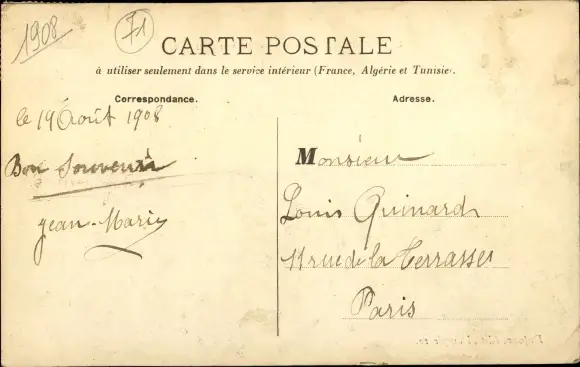 1908
71
CARTE POSTALE
à utiliser seulement dans le service intérieur (France, Algérie et Tunisie).
Correspondance.
Adresse.
le 19 Août 1908
Bon Souvenir
Jean-Marie
Monsieur
Louis Quinard
11 rue de la Terrasse
Paris